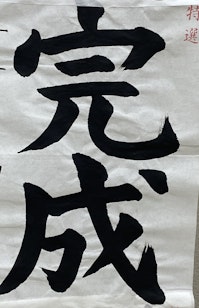 特選
完成